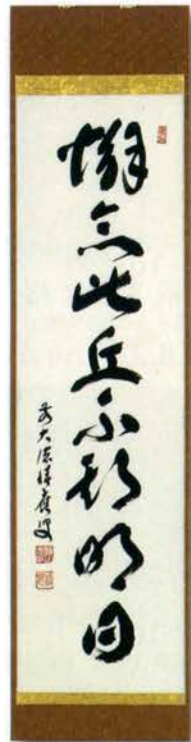 懈怠比丘不期明日
前大徳 叟